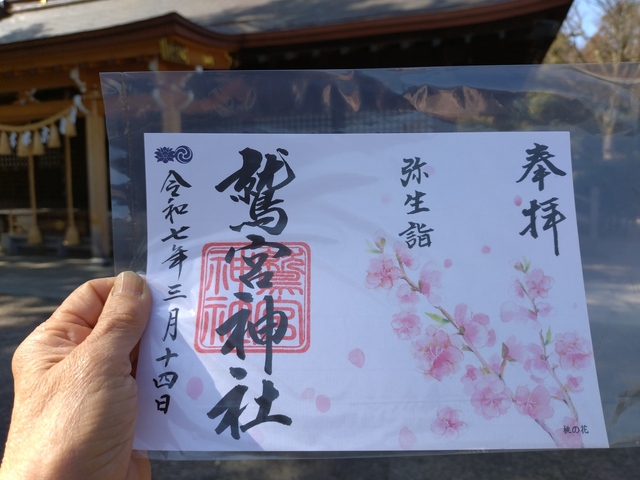 奉拝
弥生詣
鷲宮神社
鷲宮神社
令和七年三月十四日
桃の花